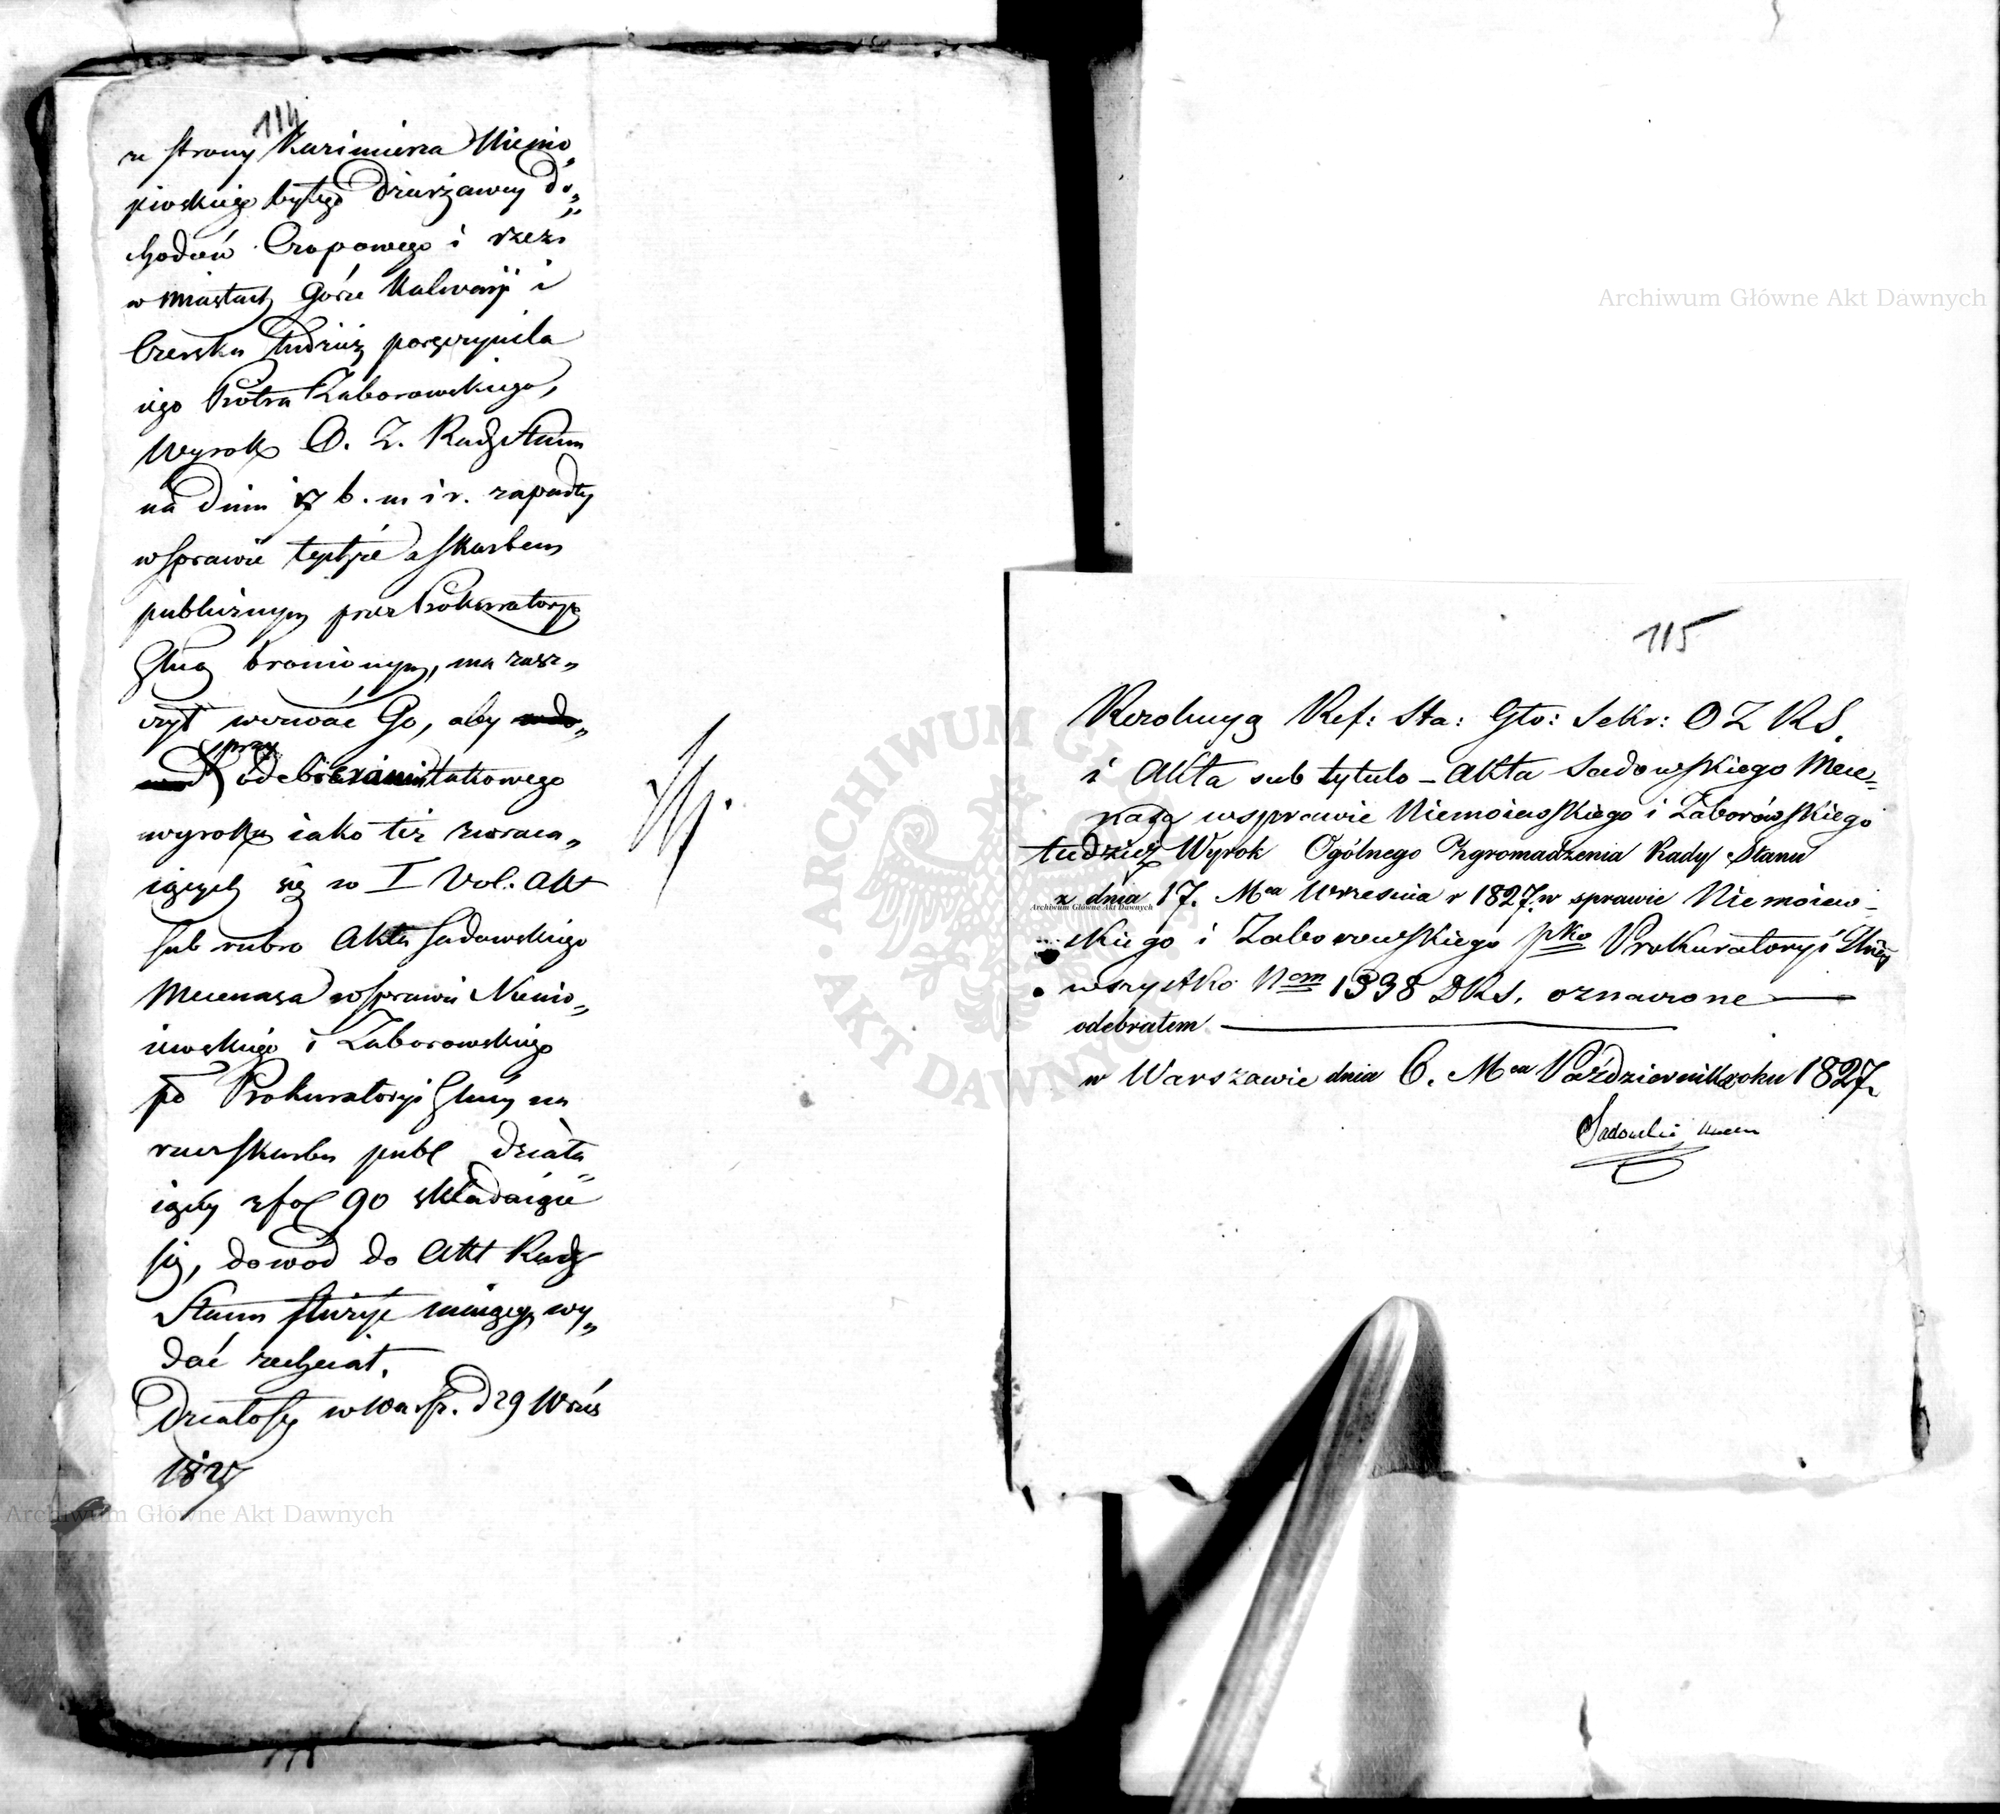 114
ze strony Kazimierza Niemo„
jewskiego byłego Dzierżawcy do„
chodów Czopowego i rzezi
w Miastach Górze Kalwaryi i
Czersku tudzież poręczyciela
iego Piotra Zaborowskiego,
Wyrok O. Z. Rady Stanu
na dniu 17 b. m. i r. zapadły
w sprawie teyże a skarbem
publicznym przez Prokuratoryą
Glną bronionym, ma zasz„
czyt wezwać Go, aby
przy odebraniu takowego
wyroku iako też zwraca„
iących się w I Vol: Akt
sub rubro Akta Sadowskiego
Mecenasa w sprawie Niemo„
iewskiego i Zaborowskiego
po Prokuratoryi Glney na
rzecz skarbu publ działa„
iącey z fol 90 składaiące
się, dowód do Akt Rady
Stanu służyć maiący, wy„
dać zechciał.
Działo się w Warsz. d 29 Wrześ
1827
115
Rezolucyą Ref: Sta: Glo: Sekr: O Z R S.
i Akta sub tytulo – Akta Sadowskiego Mece„
nasa w sprawie Niemoiewskiego i Zaborowskiego
tudzież Wyrok Ogólnego Zgromadzenia Rady Stanu
z dnia 17. Mca Września r 1827. w sprawie Niemoiew–
skiego i Zaborowskiego pko Prokuratoryi Glney
wszystko Nem 1338 DRS. oznaczone
odebrałem
w Warszawie dnia 6. Mca Października roku 1827
Sadowski Mecen
Archiwum Główne Akt Dawnych
Archiwum Główne Akt Dawnych
Archiwum Główne Akt Dawnych
ARCHIWUM GŁÓWNE AKT DAWNYCH